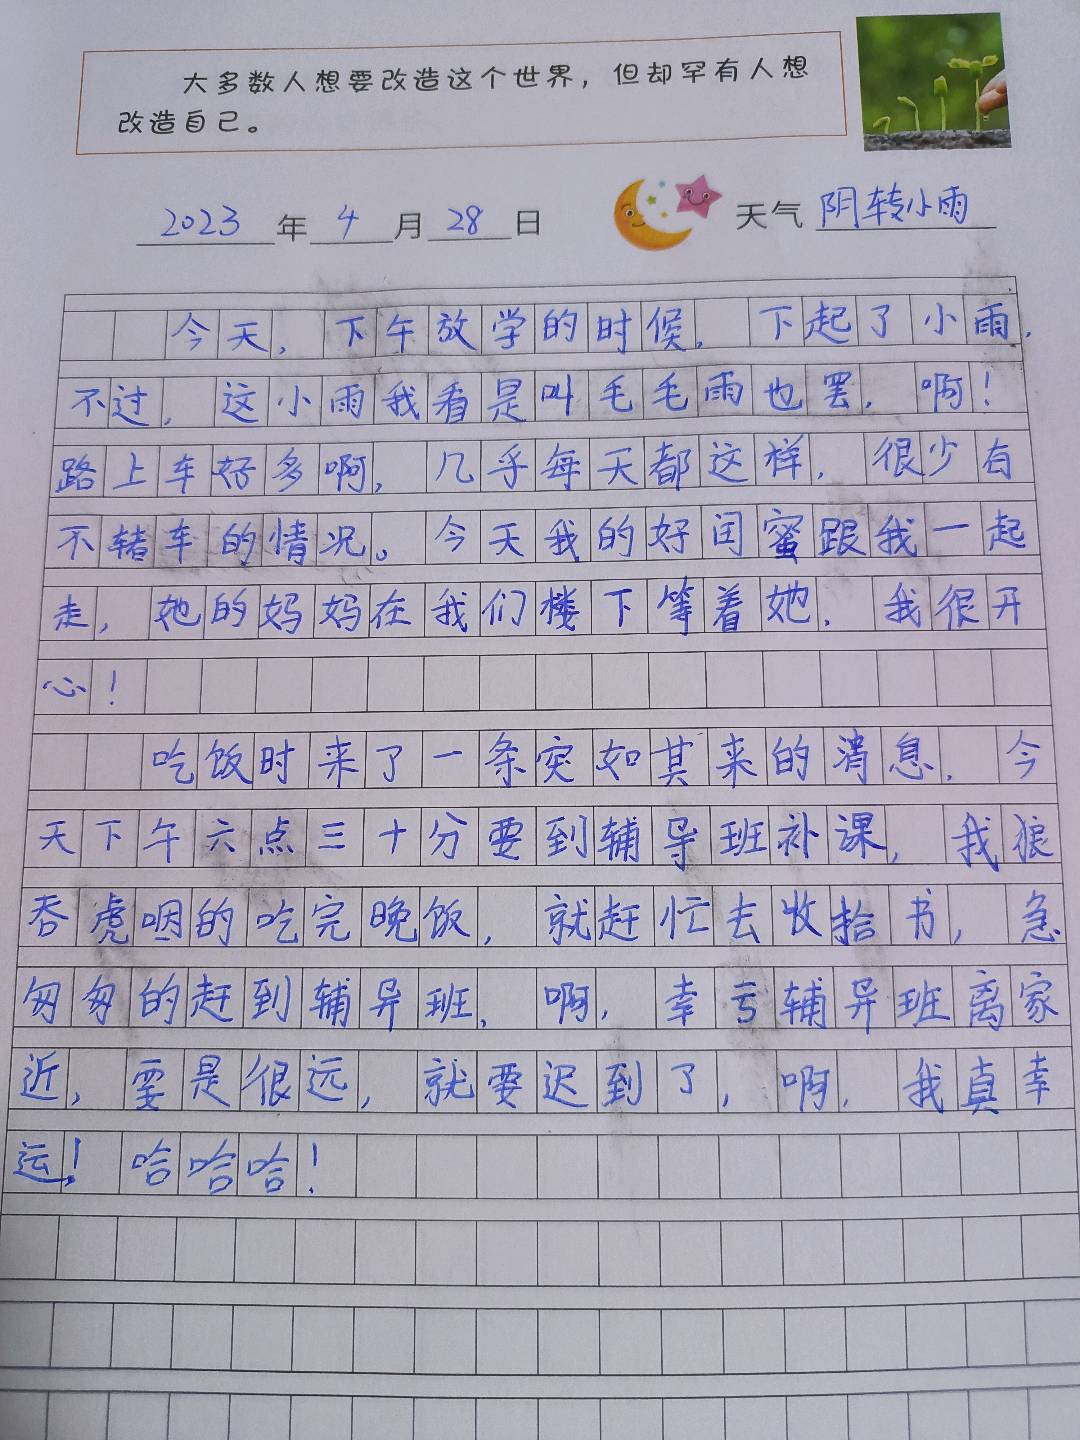 大多数人想要改造这个世界，但却罕有人想
改造自己。
2023年4月28日 天气 阴转小雨
今天，下午放学的时候，下起了小雨，
不过，这小雨我看是叫毛毛雨也罢，啊！
路上车好多啊，几乎每天都这样，很少有
不堵车的情况。今天我的好闺蜜跟我一起
走，她的妈妈在我们楼下等着她，我很开
心！
吃饭时来了一条突如其来的消息，今
天下午六点三十分要到辅导班补课，我狼
吞虎咽的吃完晚饭，就赶忙去收拾书，急
匆匆的赶到辅导班，啊，幸亏辅导班离家
近，要是很远，就要迟到了，啊，我真幸
运！哈哈哈！